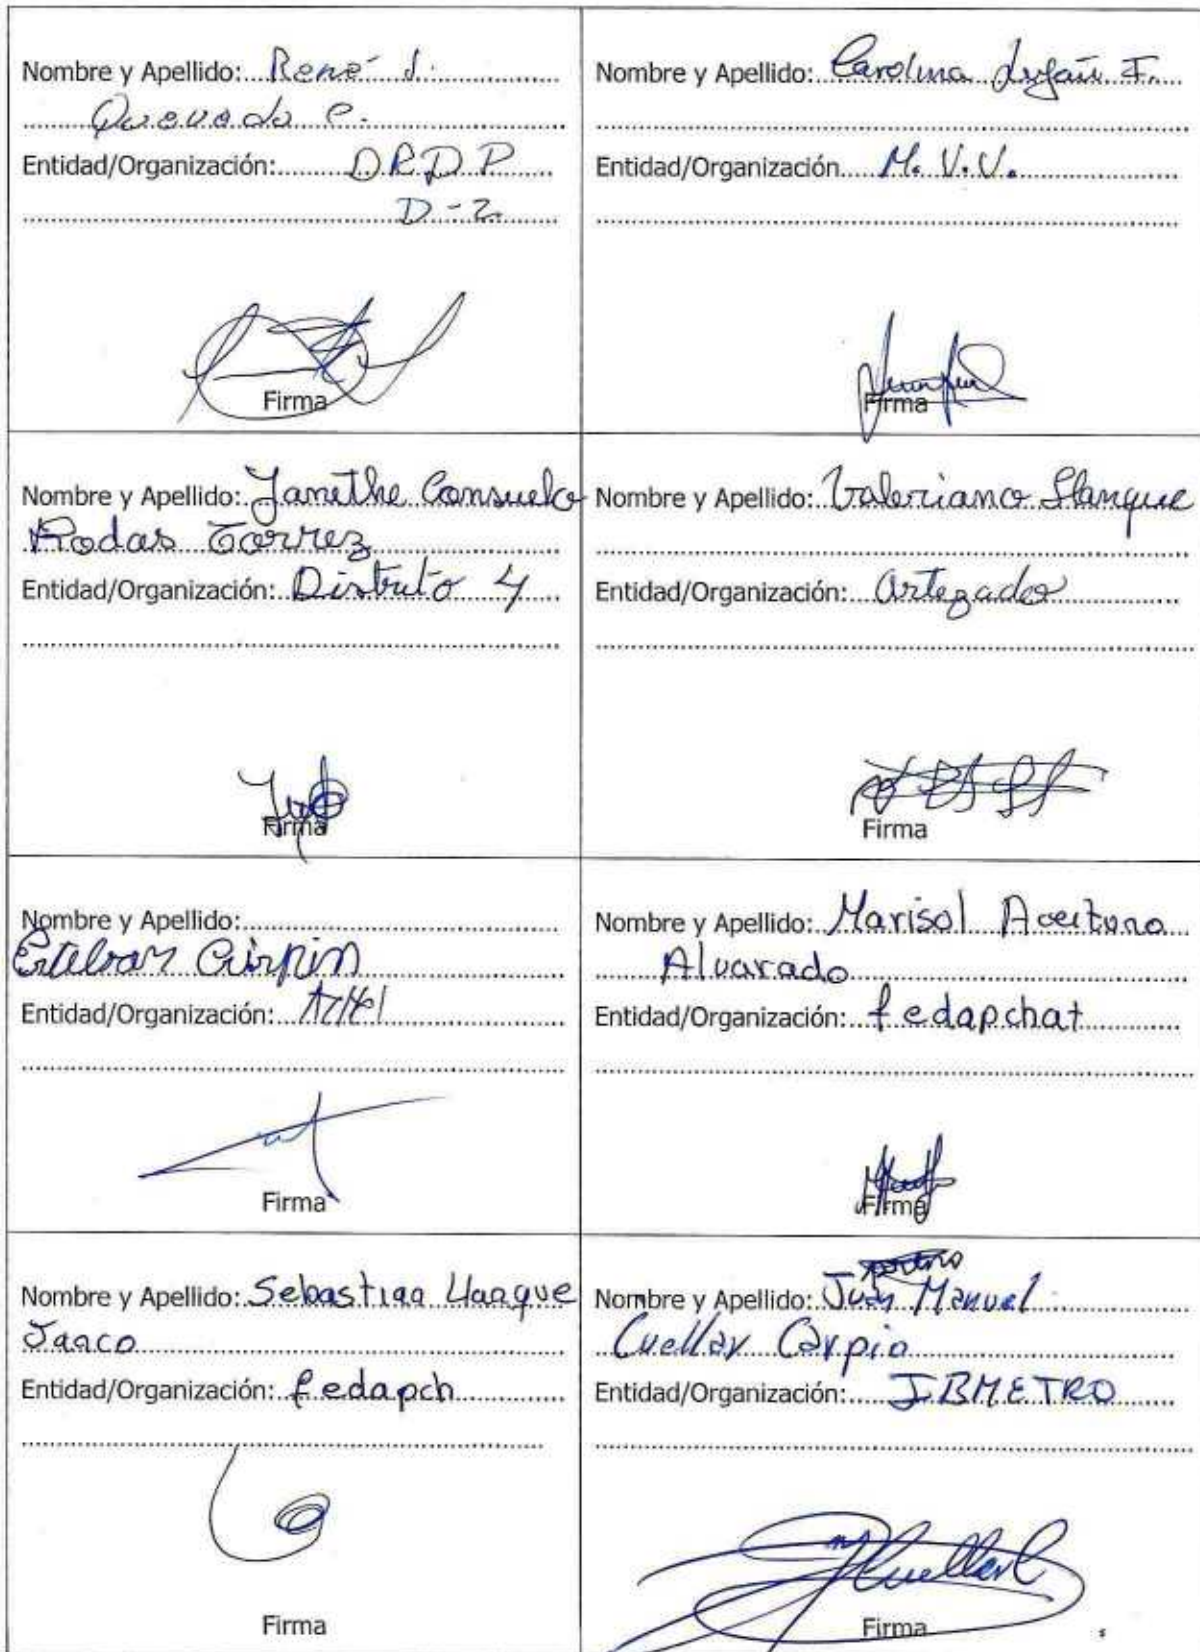 Nombre y Apellido: René J.
Quevedo C.
Entidad/Organización: D.R.D.P.
D-2
Firma
Nombre y Apellido: Carolina Luján F.
Entidad/Organización M.V.V.
Firma
Nombre y Apellido: Janethe Consuelo
Rodas Torrez
Entidad/Organización: Distrito 4
Firma
Nombre y Apellido: Valeriano Llanque
Entidad/Organización: Artezado
Firma
Nombre y Apellido:
Esteban Crispin
Entidad/Organización:
Firma
Nombre y Apellido: Marisol Aceituno
Alvarado
Entidad/Organización: fedapchat
Firma
Nombre y Apellido: Sebastian Llanque
Janco
Entidad/Organización: fedapch
Firma
Nombre y Apellido: Juan Manuel
Cuellar Carpio
Entidad/Organización: IBMETRO
Firma